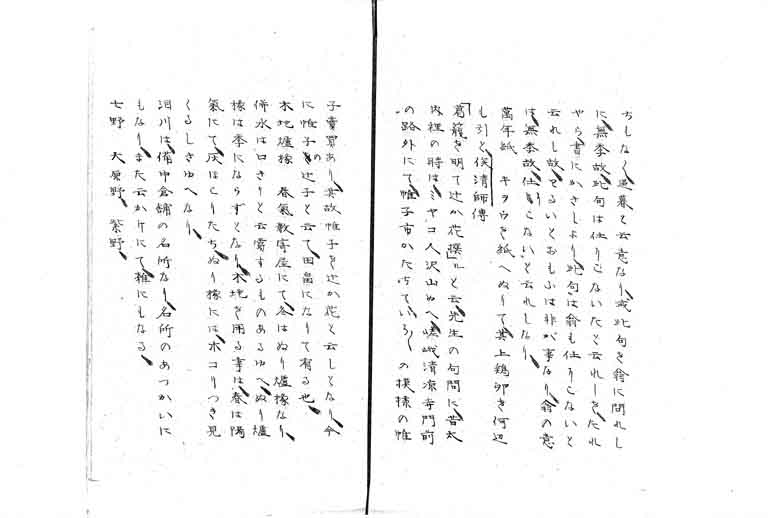 もなく歳暮と云意なり或此句を翁に問れし
に無季故此句は仕りこないたと云れしをたれ
やら書にかさしより此句は翁も仕りこないと
云れし故てるいとおもふは非か事なり翁の意
は無季故仕りこないと云れしなり
萬年紙 キヲウを紙へぬりて其上鶏卵を何辺
も引と俟清師傳
葛籠を明て辻か花撰ルと云先生の句問に昔太
内裡の時はミヤコ人沢山ゆへ嵯峨清凉寺門前
の路外にて帷子市かたちていろ〳〵の模様の帷
子賣買あり其故帷子を辻か花と云しとなり今
に帷子の辻子と云て田畠になりて有る也
木地爐椽 春氣数寄屋にて冬はぬり爐椽なり
併永は口きりと云賞するものあるゆへぬり爐
椽は季にならずとなり木地を用る事は春は陽
氣にて灰はくりたちぬり椽にはホコりつき見
くるしきゆへなり
洞川は備中倉舗の名所なり名所のあつかいに
もなりまた云かけにて雑にもなる
七野 大原野 紫野